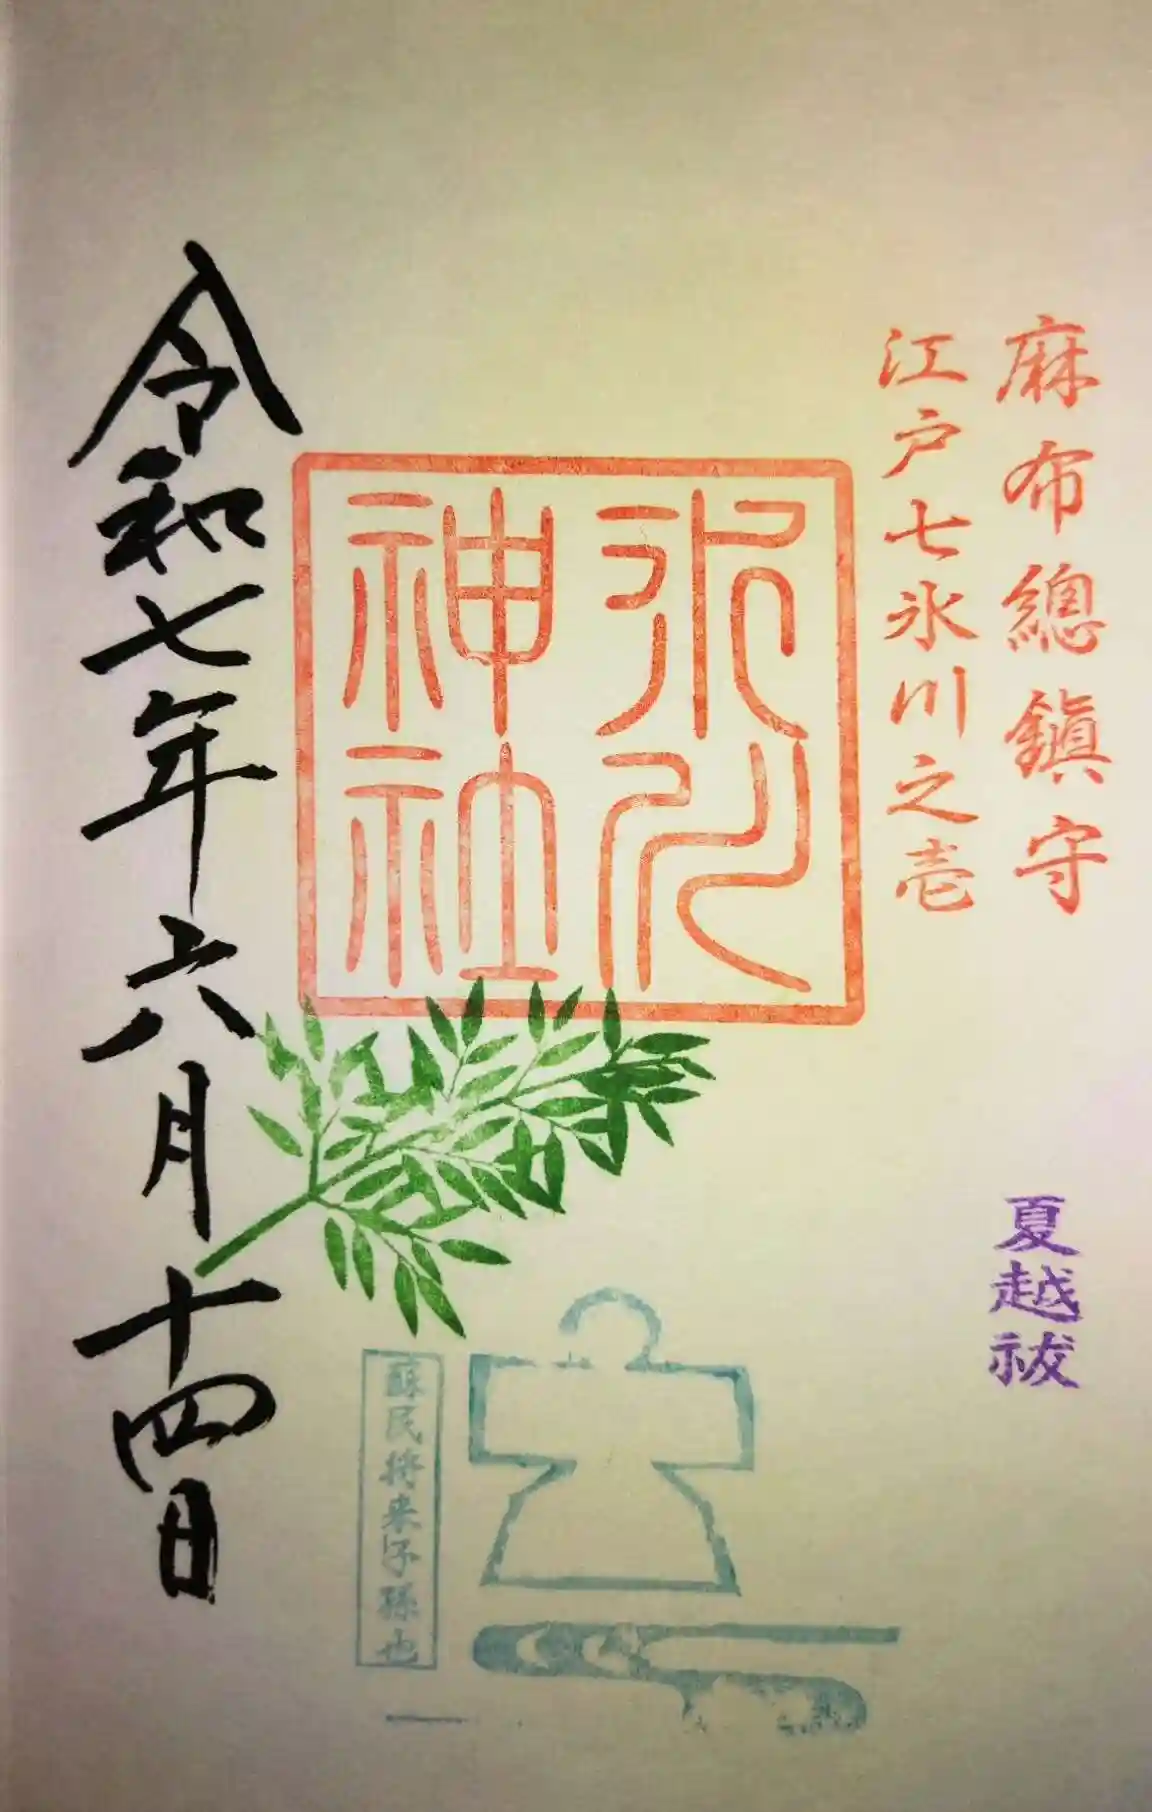 麻布總鎮守
江戸七氷川之壱
夏越祓
氷川
神社
蘇民将来子孫也
令和七年六月十四日